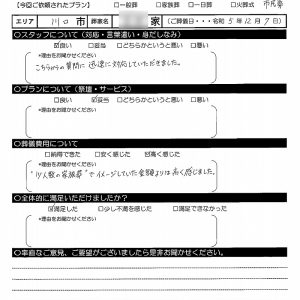 【今回ご依頼されたプラン】 □一般葬 □家族葬 □一日葬 □火葬式 市民葬
エリア 川口市 葬家名 家 (ご葬儀日・・・令和5年12月7日)
○スタッフについて(対応・言葉遣い・身だしなみ)
☑良い □妥当 □どちらかというと悪い □悪い
*理由をお聞かせください
こちらからの質問に迅速に対応していただきました。
○プランについて(祭壇・サービス)
□良い ☑妥当 □どちらかというと悪い □悪い
*理由をお聞かせください
○葬儀費用について
□納得できた □安く感じた ☑高く感じた
*理由をお聞かせください
"少人数の家族葬"でイメージしていた金額よりは高く感じました。
○全体的に満足いただけましたか?
☑満足した □少し不満を感じた □満足できなかった
*理由をお聞かせください
○率直なご意見、ご要望がございましたら是非お聞かせください。